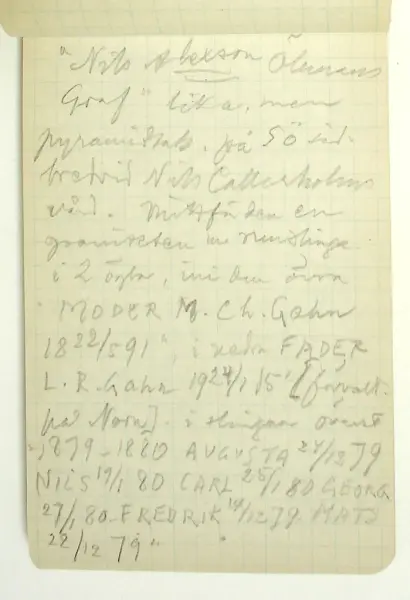 "Nils Alexson Ölmans
Graf" lika, men
pyramidtak, på SÖ sid.
bredvid Nils Callerholms
vård. Mittför den en
granitsten m runslinga
i 2 öglor, i den övra
MODER M. Ch. Gahn
18 22/5 91", i nedra FADER
L. R. Gahn 19 24/1 15" [förvalt.
på Norn]. i slingan överst
1879-1880 AUGUSTA 24/12 79
NILS 19/1 80 CARL 25/1 80 GEORG
27/1 80 FREDRIK 19/12 79 MATS
22/12 79"